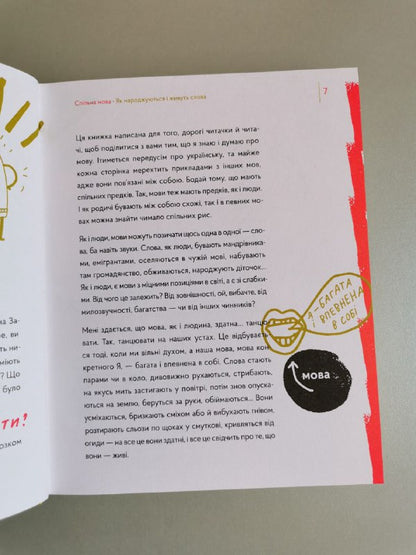 Спільна мова • Як народжуються і живуть слова
7
Ця книжка написана для того, дорогі читачки й чита-
чі, щоб поділитися з вами тим, що я знаю і думаю про
мову. Ітиметься передусім про українську, та майже
кожна сторінка мерехтить прикладами з інших мов,
адже вони пов'язані між собою. Бодай тому, що мають
спільних предків. Так, мови теж мають предків, як і люди.
І як родичі бувають між собою схожі, так і в певних мо-
вах можна знайти чимало спільних рис.
Як і люди, мови можуть позичати щось одна в одної — сло-
ва, ба навіть звуки. Слова, як люди, бувають мандрівни-
ками, емігрантами, оселяться у чужій мові, набувають
там громадянство, обживаються, народжують діточок...
Як і люди, мови є з міцними позиціями в світі, а є зі слабки-
ми. Від чого це залежить? Від зовнішності, ой, вибачте, від
милозвучності, багатства — чи від інших чинників?
Мені здається, що мова, як і людина, здатна... танцю-
вати. Так, танцювати на наших устах. Це відбуваєть-
ся тоді, коли ми вільні духом, а наша мова, мова кон-
кретного Я, — багата і впевнена в собі. Слова стають
парами чи в коло, дивовижно рухаються, стрибають,
на якусь мить застигають у повітрі, потім знов опуска-
ються на землю, беруться за руки, обіймаються... Вони
усміхаються, бризкають сміхом або й вибухають гнівом,
розтирають сльози по щоках у смуткові, кривляться від
огиди — на все це вони здатні, і все це свідчить про те, що
вони — живі.
Я — БАГАТА
І ВПЕВНЕНА
В СОБІ
мова
на За-
е, ви
ть ни-
міють
? Що
було
ти?
рзком